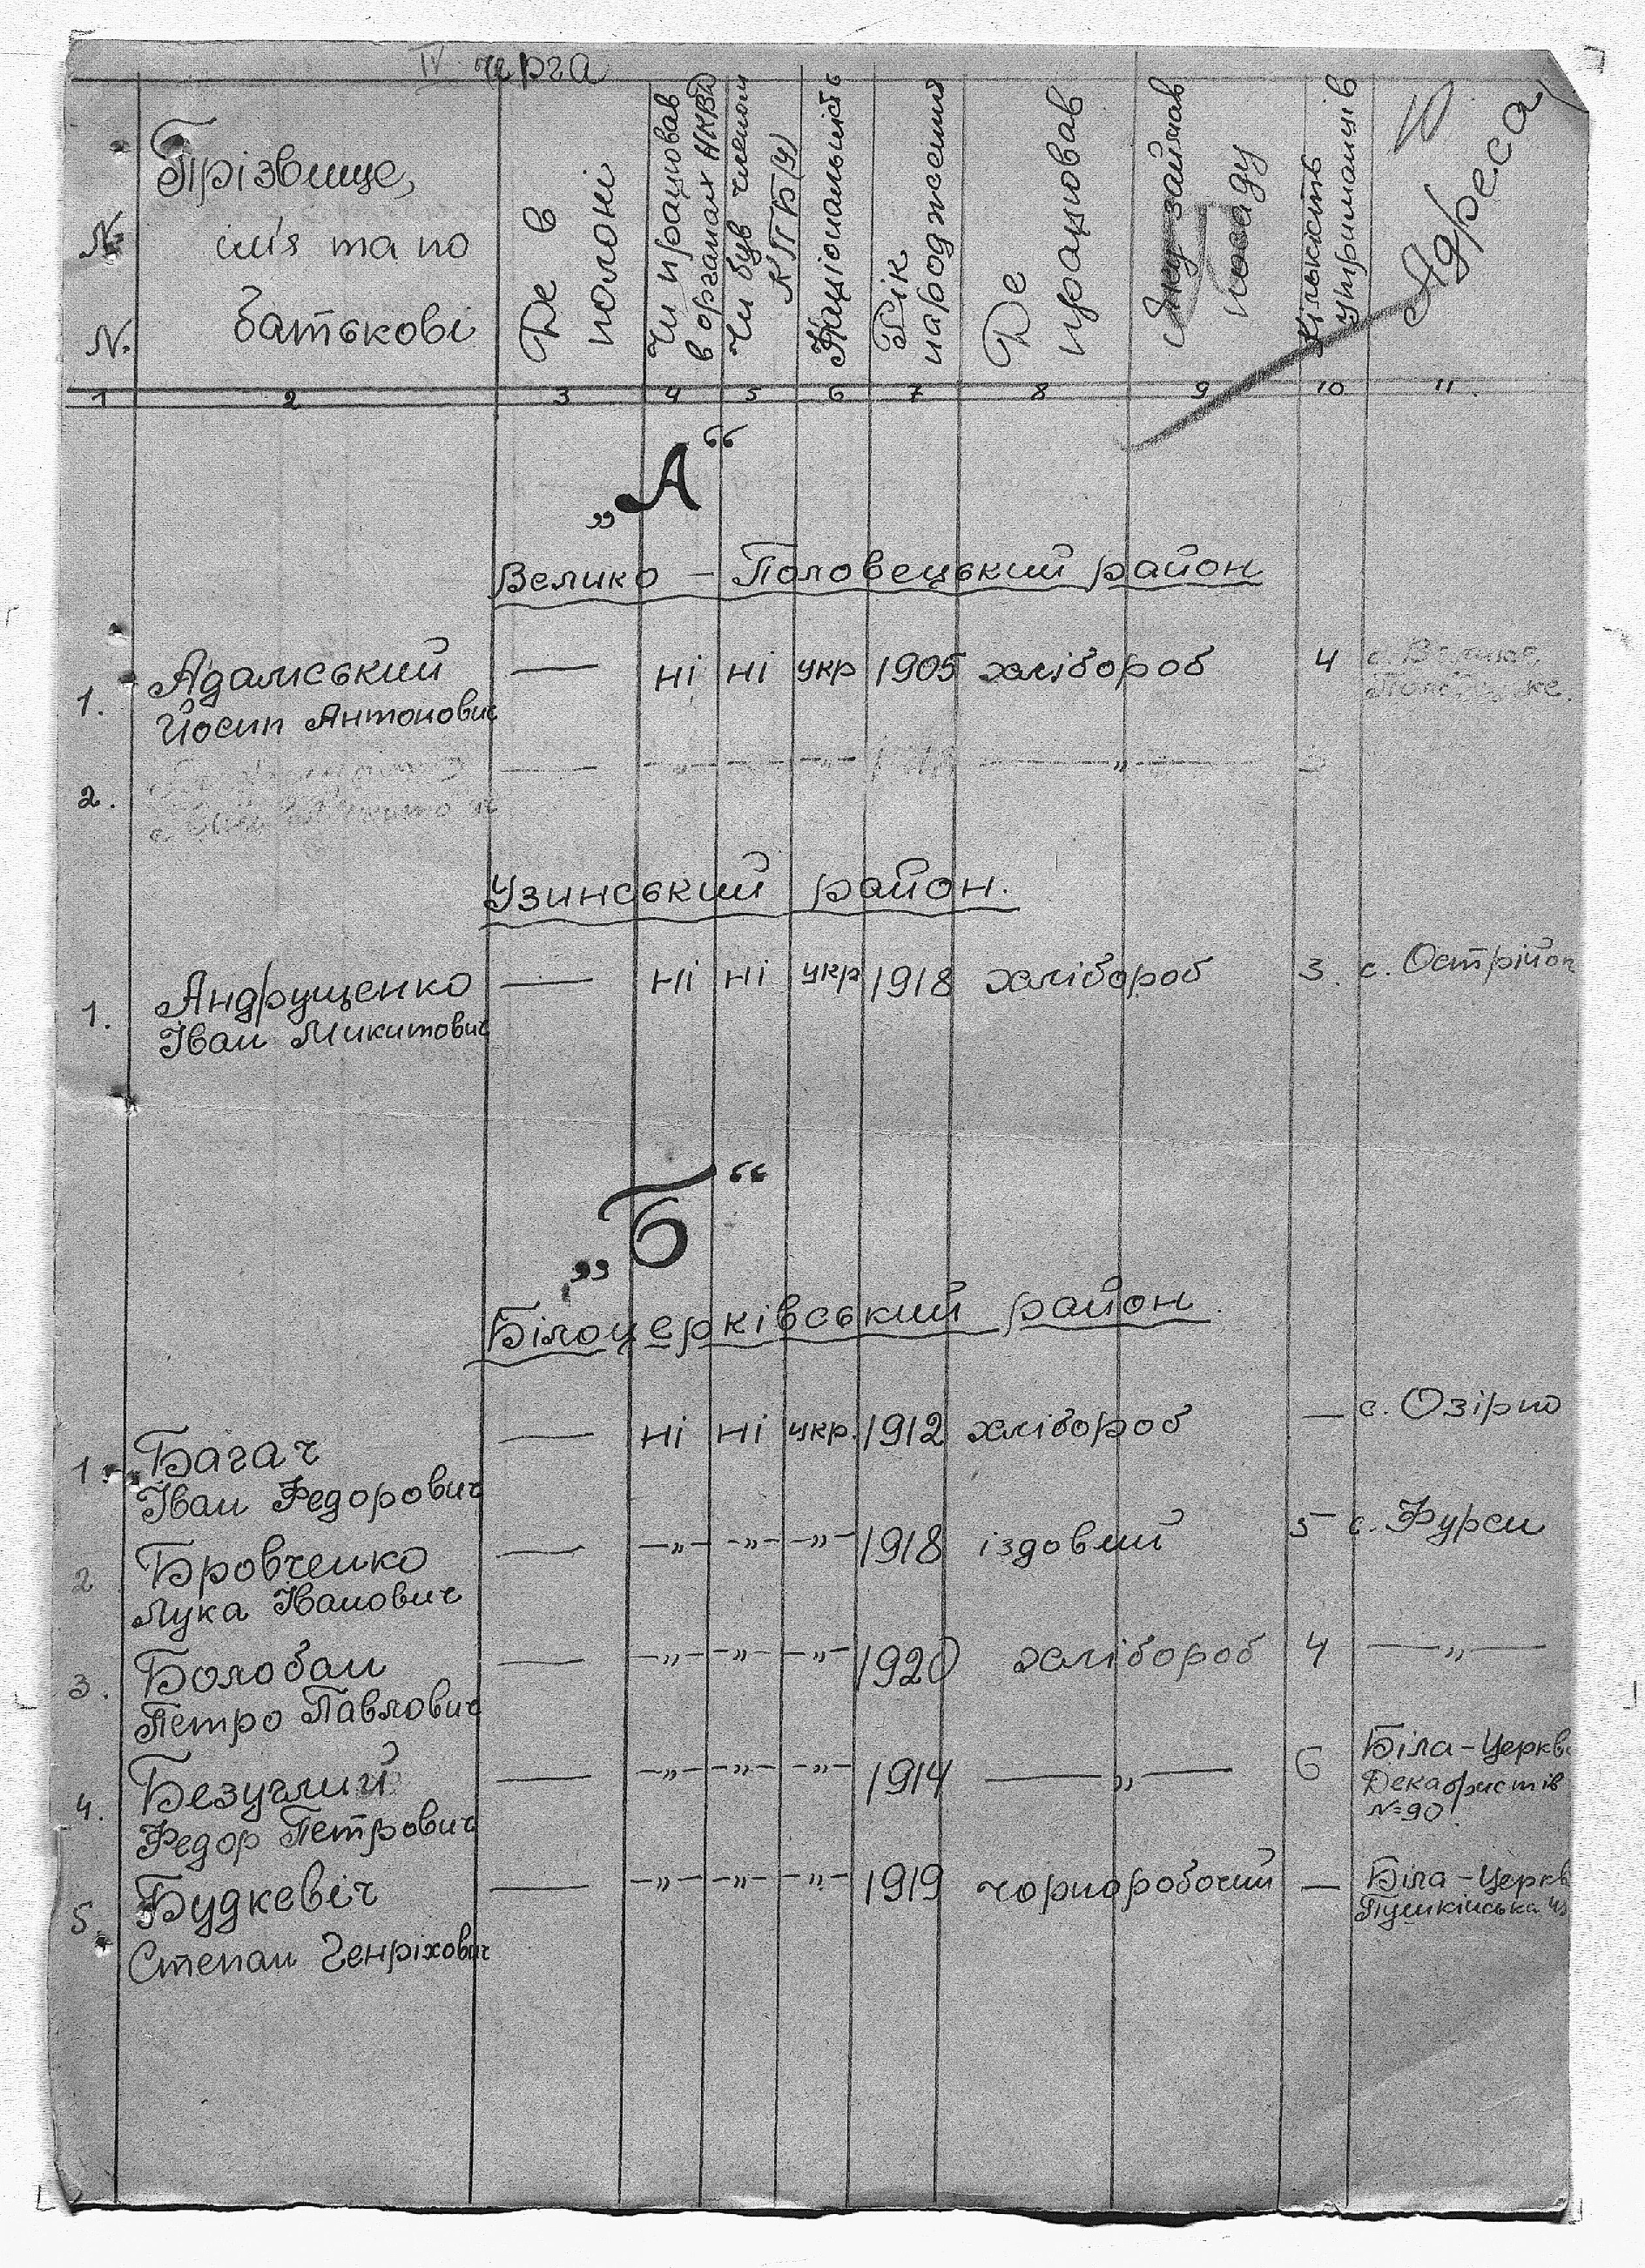 IV черга
10
№ №
Прізвище,
ім'я та по
батькові
Де в
полоні
Чи працював
в органах НКВД
Чи був членом
КПБ(У)
Національність
Рік
народження
Де
працював
Яку займав
посаду
Кількість
утриманців
Адреса
1 2 3 4 5 6 7 8 9 10 11.
„А“
Велико – Половецький район
1. Адамський — ні ні укр 1905 хлібороб 4 с. Велико
Йосип Антонович Половецьке.
2. — —„— —„— —„— —„—
Узинський район.
1. Андрущенко — ні ні укр 1918 хлібороб 3. с. Острійо
Іван Микитович
„Б“
Білоцерківський район.
1. Багач — ні ні укр. 1912 хлібороб — с. Озірно
Іван Федорович
2 Бровченко — —„— —„— —„— 1918 їздовий 5 с. Фурси
Лука Іванович
3. Болобан — —„— —„— —„— 1920 хлібороб 4 —„—
Петро Павлович
4. Безуглий — —„— —„— —„— 1914 —„— 6 Біла-Церкв
Федор Петрович Декабристів
№90
5. Будкевіч — —„— —„— —„— 1919 чорноробочий — Біла-Церкв
Степан Генріхович Пушкінська